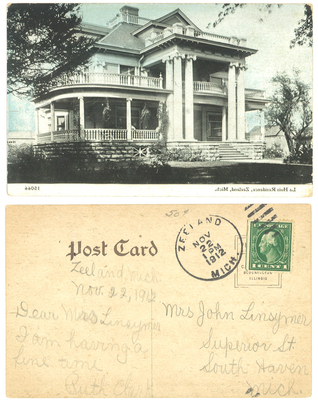 15064
La Huis Residence, Zeeland, Mich.
Post Card
ZEELAND
NOV
22
1 PM
1912
MICH.
1 CENT 1
Zeeland, Mich
Nov. 22, 1912
Dear Mrs Linsymer
I am having a
fine time.
Ruth
Mrs John Linsymer
Superior St
South Haven
Mich.